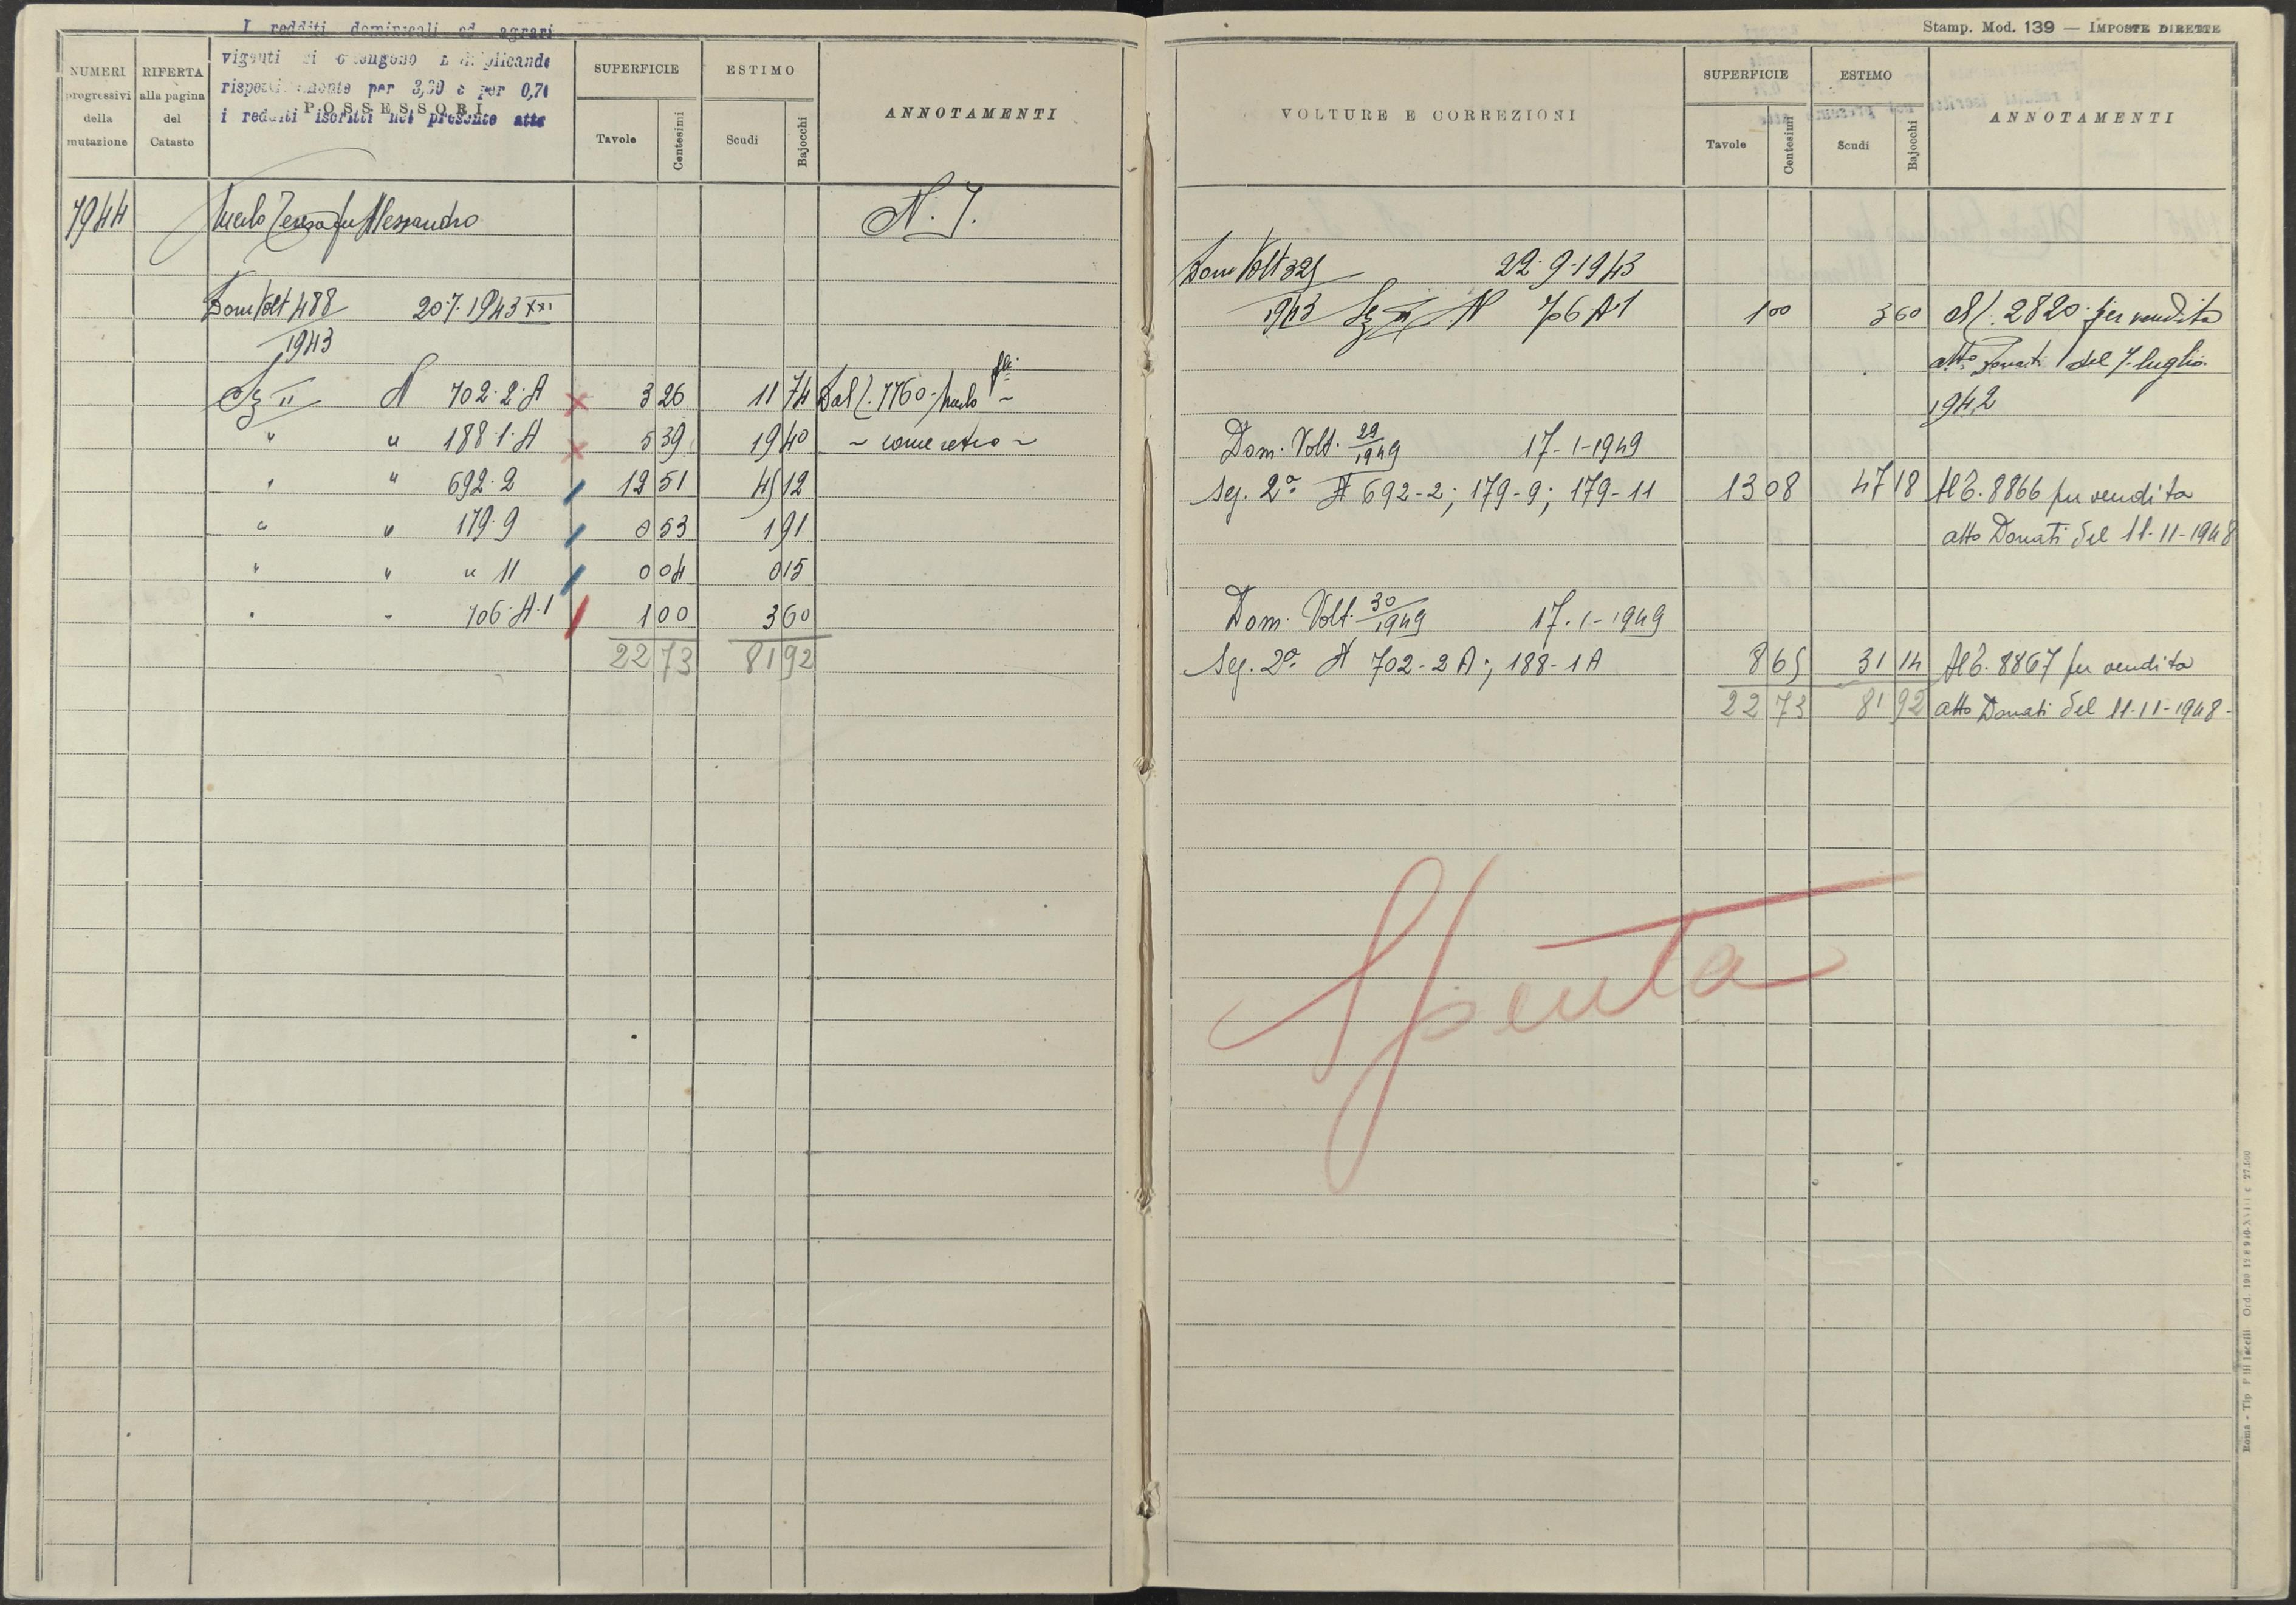 I redditi dominicali ed agrari
vigenti si ottengono moltiplicando
rispettivamente per 3,30 e per 0,70
i redditi iscritti nel presente atto
NUMERI progressivi della mutazione
RIFERTA alla pagina del Catasto
POSSESSORI
SUPERFICIE
Tavole Centesimi
ESTIMO
Scudi Bajocchi
ANNOTAMENTI
7944 Teresa fu Alessandro N. 7.
Dom Volt 488 20.7.1943 XXI
1943
Sz II N 702.2.A 3 26 11 74 Dal 7760
" " 188.1.A 5 39 19 40 ~ come retro ~
" " 692.2 12 51 45 12
" " 179.9 0 53 1 91
" " " 11 0 04 0 15
" " 706.A.1 1 00 3 60
22 73 81 92
Stamp. Mod. 139 — IMPOSTE DIRETTE
VOLTURE E CORREZIONI
SUPERFICIE
Tavole Centesimi
ESTIMO
Scudi Bajocchi
ANNOTAMENTI
Dom Volt 325 22.9.1943
1943 Sz II N 706 A 1 1 00 3 60 al 2820 per vendita
atto Donati del 7 luglio
1942
Dom. Volt. 29/1949 17-1-1949
Sez. 2ª N 692-2; 179-9; 179-11 13 08 47 18 8866 per vendita
atto Donati del 11-11-1948
Dom. Volt. 30/1949 17-1-1949
Sez. 2ª N 702-2 A; 188-1 A 8 65 31 14 8867 per vendita
22 73 81 92 atto Donati del 11-11-1948-
Spenta